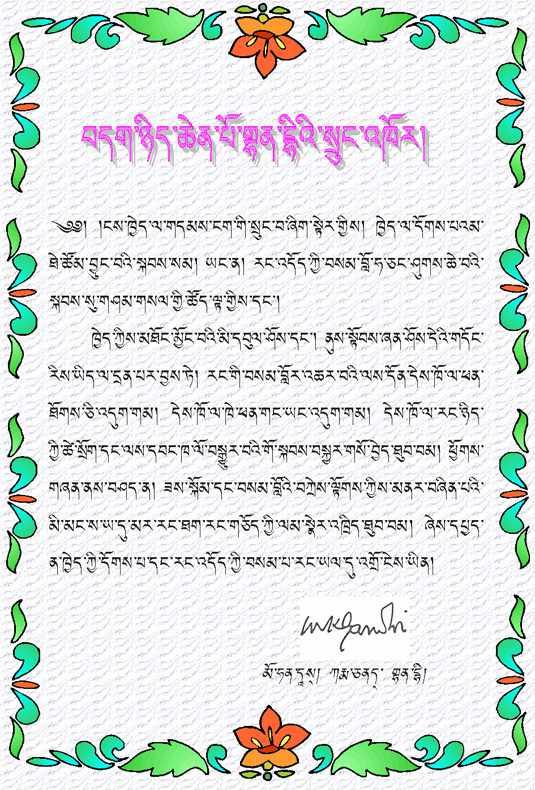 བདག་ཉིད་ཆེན་པོ་གྷན་དྷིའི་སྲུང་འཁོར།
༄༅། །ངས་ཁྱེད་ལ་གདམས་ངག་གི་སྲུང་བ་ཞིག་སྟེར་གྱིས། ཁྱེད་ལ་དོགས་པའམ་
ཐེ་ཚོམ་བྱུང་བའི་སྐབས་སམ། ཡང་ན། རང་འདོད་ཀྱི་བསམ་བློ་ཧ་ཅང་ཤུགས་ཆེ་བའི་
སྐབས་སུ་གཤམ་གསལ་གྱི་ཚོད་ལྟ་གྱིས་དང་།
ཁྱེད་ཀྱིས་མཐོང་མྱོང་བའི་མི་དབུལ་ཤོས་དང་། ནུས་སྟོབས་ཞན་ཤོས་དེའི་གདོང་
རིས་ཡིད་ལ་དྲན་པར་བྱས་ཏེ། རང་གི་བསམ་བློར་འཆར་བའི་ལས་དོན་དེས་ཁོ་ལ་ཕན་
ཐོགས་ཅི་འདུག་གམ། དེས་ཁོ་ལ་ཁེ་ཕན་གང་ཡང་འདུག་གམ། དེས་ཁོ་ལ་རང་ཉིད་
ཀྱི་ཚེ་སྲོག་དང་ལས་དབང་ཁ་ལོ་བསྒྱུར་བའི་གོ་སྐབས་བསྐྱར་གསོ་བྱེད་ཐུབ་བམ། ཕྱོགས་
གཞན་ནས་བཤད་ན། ཟས་སྐོམ་དང་བསམ་བློའི་བཀྲེས་ལྟོགས་ཀྱིས་མནར་བཞིན་པའི་
མི་མང་ས་ཡ་དུ་མར་རང་ཐག་རང་གཅོད་ཀྱི་ལམ་སྣེར་འཁྲིད་ཐུབ་བམ། ཞེས་དཔྱད་
ན་ཁྱེད་ཀྱི་དོགས་པ་དང་རང་འདོད་ཀྱི་བསམ་པ་རང་ཡལ་དུ་འགྲོ་ངེས་ཡིན།
mkgandhi
མོ་ཧན་དཱས། ཀརྨ་ཅནད་ གྷན་དྷི།